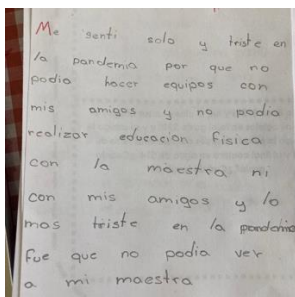 Me senti solo y triste en
la pandemia por que no
podia hacer equipos con
mis amigos y no podia
realizar educacion fisica
con la maestra ni
con mis amigos y lo
mas triste en la pandemia
fue que no podia ver
a mi maestra